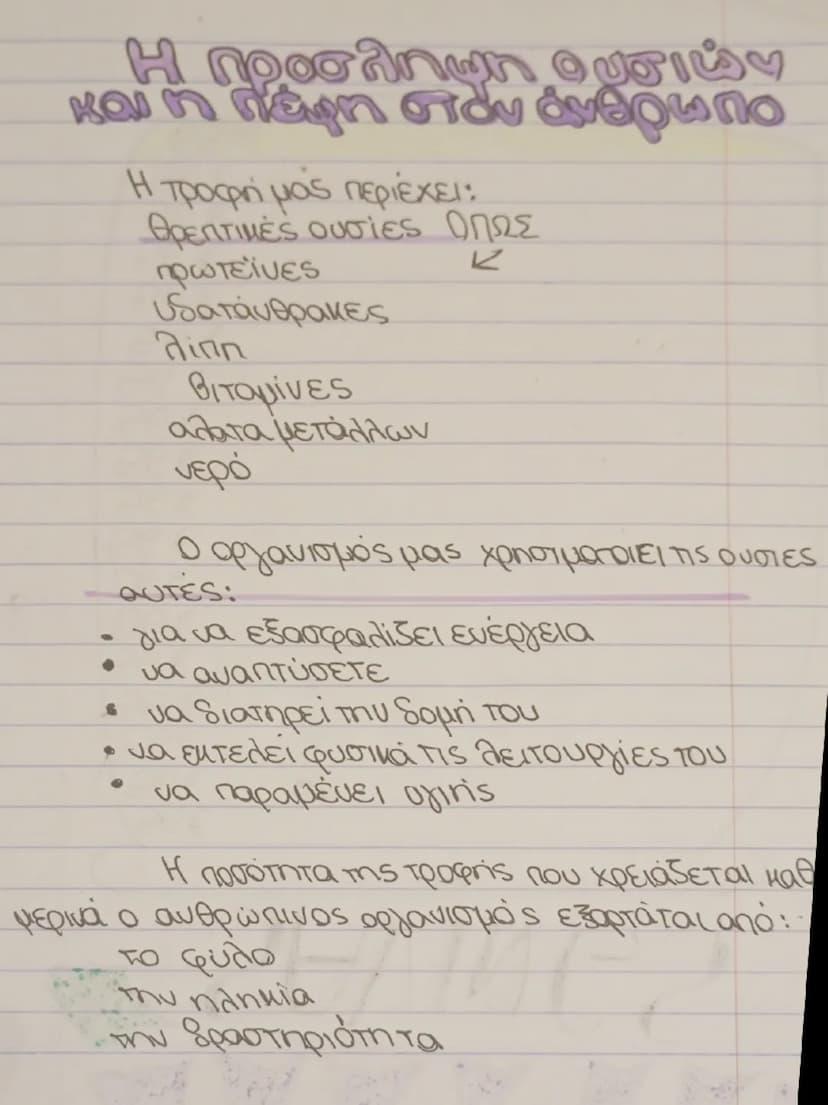 Η πρόσληψη ουσιών
και η πέψη στον άνθρωπο
Η τροφή μας περιέχει:
θρεπτικές ουσίες ΟΠΩΣ
πρωτεΐνες
υδατάνθρακες
λίπη
βιταμίνες
αλατα μετάλλων
νερό
Ο οργανισμός μας χρησιματοιεί τις ουσιες
αυτές:
• για να εξασφαλίζει ενέργεια
• να αναπτύσετε
• να διατηρεί την δομή του
• να εκτελεί φυσικά τις λειτουργίες του
• να παραμένει υγιής
Η ποσότητα της τροφής που χρειάζεται καθ
μερικά ο ανθρώπινος οργανισμός εξαρτάται από:
το φύλο
την ηληκία
την δραστηριότητα